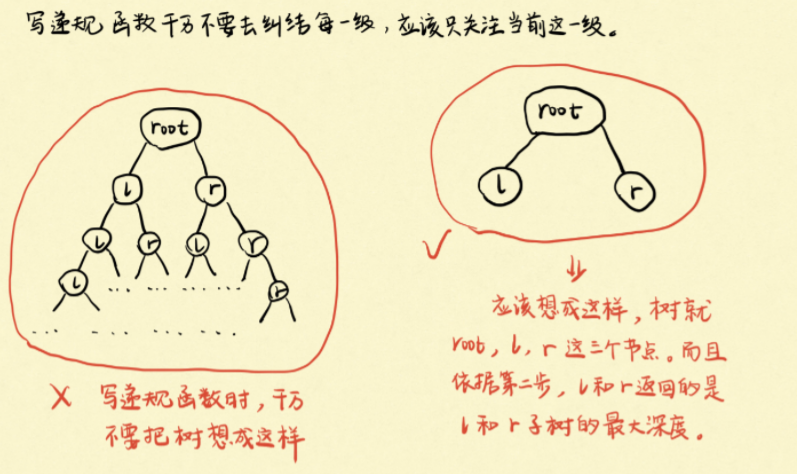 写递规函数千万不要去纠结每一级，应该只关注当前这一级。
root
l r
l r l r
l r
...... ......
... ... ......
✗ 写递规函数时，千万
不要把树想成这样
root
l r
✓
⇓
应该想成这样，树就
root，l，r 这三个节点。而且
依据第二步，l和r返回的是
l 和 r 子树的最大深度。